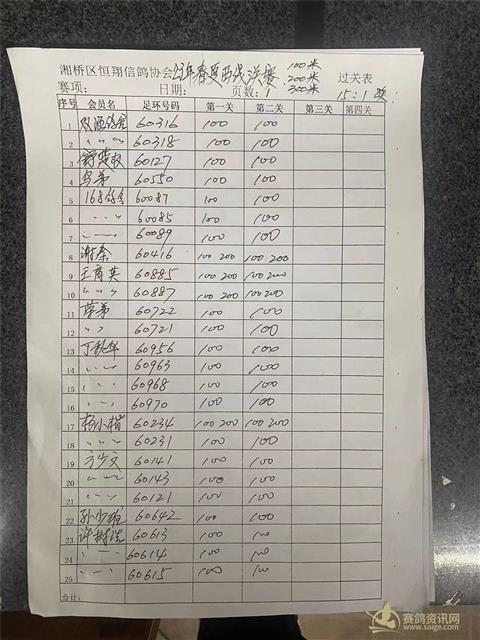 湘桥区恒翔信鸽协会 春夏两线决赛 100米
200米 过关表
赛项: 日期: 页数:1 300米 15:1奖
序号 会员名 足环号码 第一关 第二关 第三关 第四关
1 60316 100 100
2 〃 〃 〃 60318 100 100
3 60127 100 100
4 60550 100 100
5 60087 100 100
6 〃 〃 60085 100 100
7 〃 〃 60089 100 100
8 谢泰 60416 100 200 100 200
9 60885 100 200 100 200
10 〃 〃 〃 60887 100 200 100 200
11 60722 100 100
12 〃 〃 60721 100 100
13 丁秋华 60956 100 100
14 〃 〃 〃 60963 100 100
15 〃 〃 60968 100 100
16 〃 〃 60970 100 100
17 杨小楷 60234 100 200 100 200
18 〃 〃 〃 60231 100 100
19 方少文 60141 100 100
20 〃 〃 〃 60143 100 100
21 〃 〃 60121 100 100
22 60642 100 100
23 60613 100 100
24 〃 〃 60614 100 100
25 〃 〃 60615 100 100
合计:
赛鸽资讯网